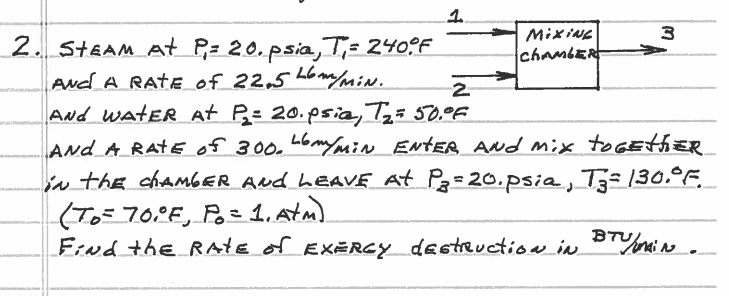 1
MIXING 3
2. STEAM At P₁= 20. psia, T₁= 240°F
CHAMBER
ANd A RATE of 22.5 Lbm/min.
2
ANd WATER At P₂= 20. psia, T₂= 50.°F
ANd A RATE of 300. Lbm/min ENTER ANd mix toGEthER
in thE chAMBER ANd LEAVE At P₃=20. psia, T₃=130.°F.
(T₀= 70.°F, P₀= 1. Atm)
Find thE RAtE of EXERGY dEstRuction in BTU/min.